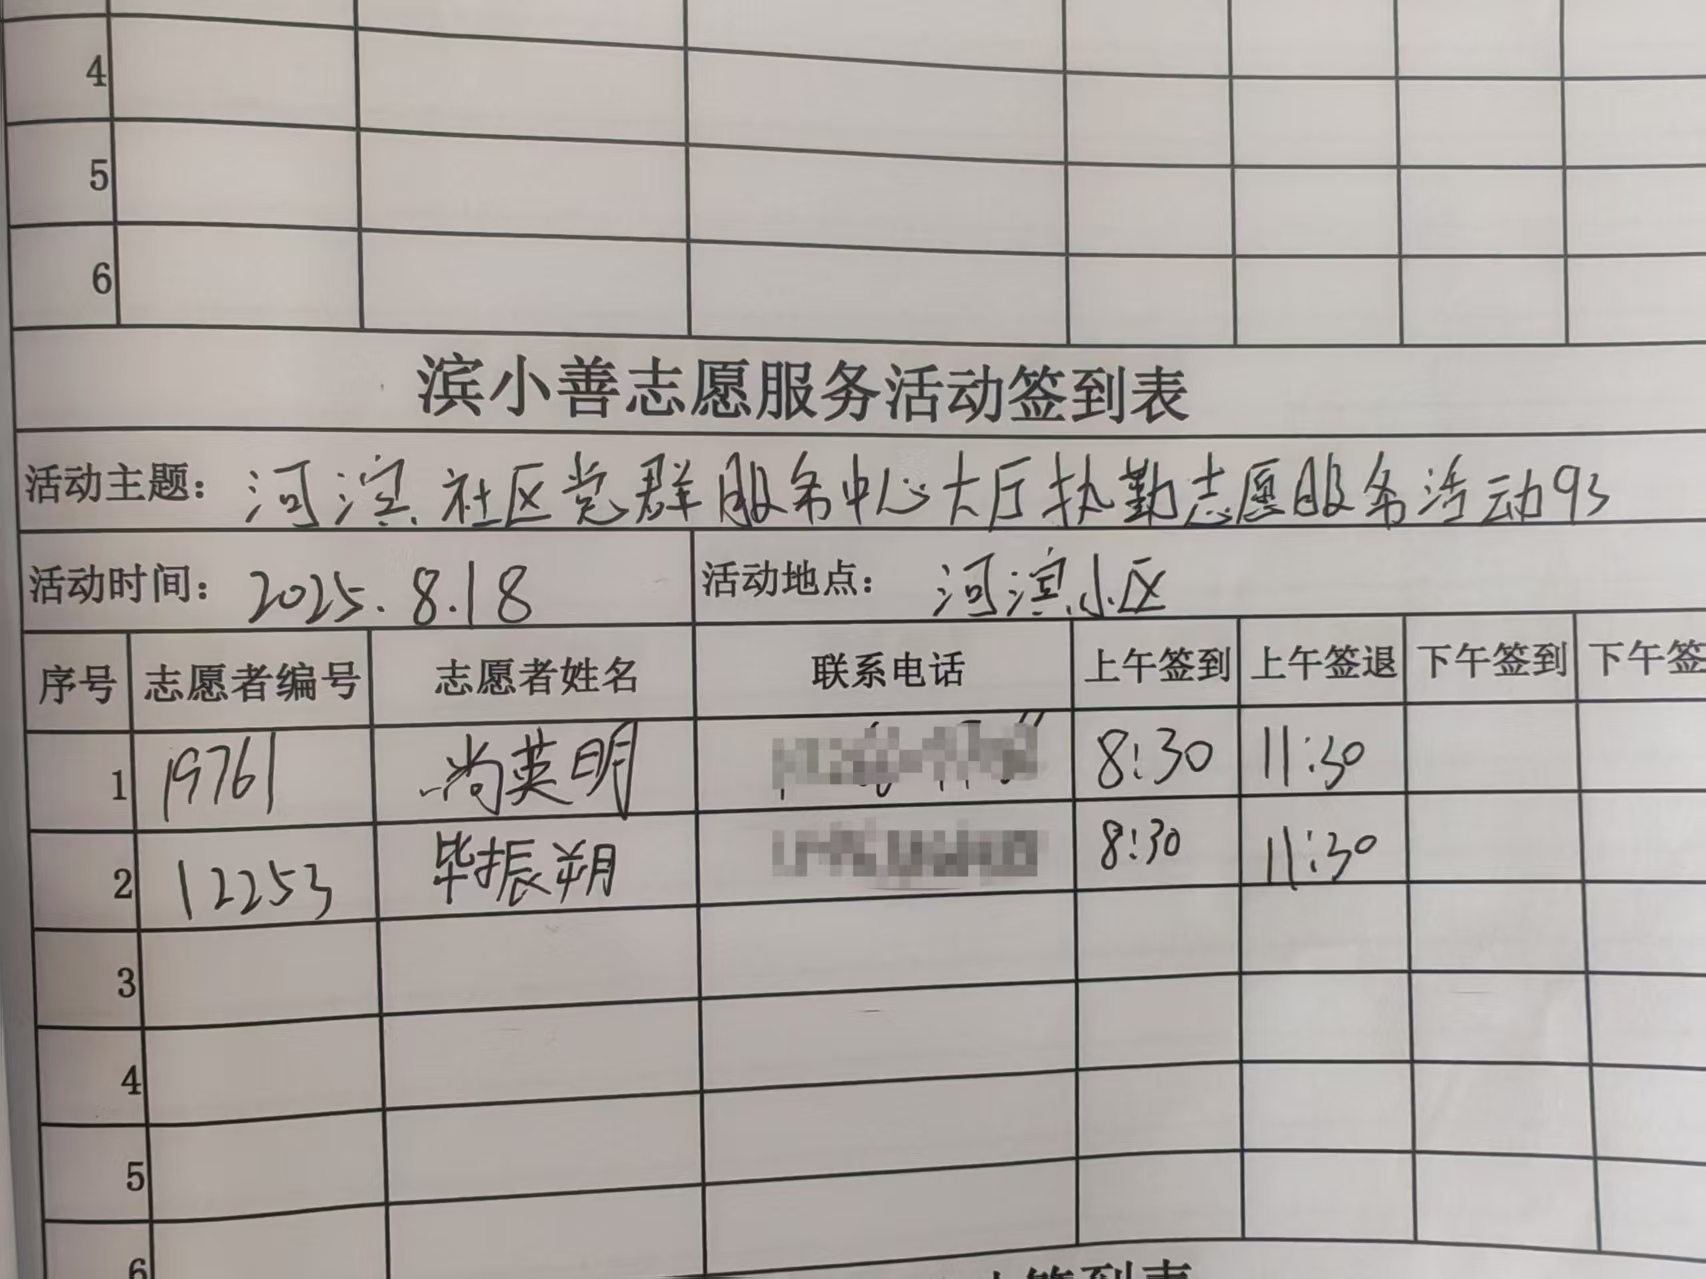 4
5
6
滨小善志愿服务活动签到表
活动主题：河滨社区党群服务中心大厅执勤志愿服务活动93
活动时间：2025.8.18 活动地点：河滨小区
序号 志愿者编号 志愿者姓名 联系电话 上午签到 上午签退 下午签到 下午签
1 19761 尚英明 8:30 11:30
2 12253 毕振朔 8:30 11:30
3
4
5
6
签到表